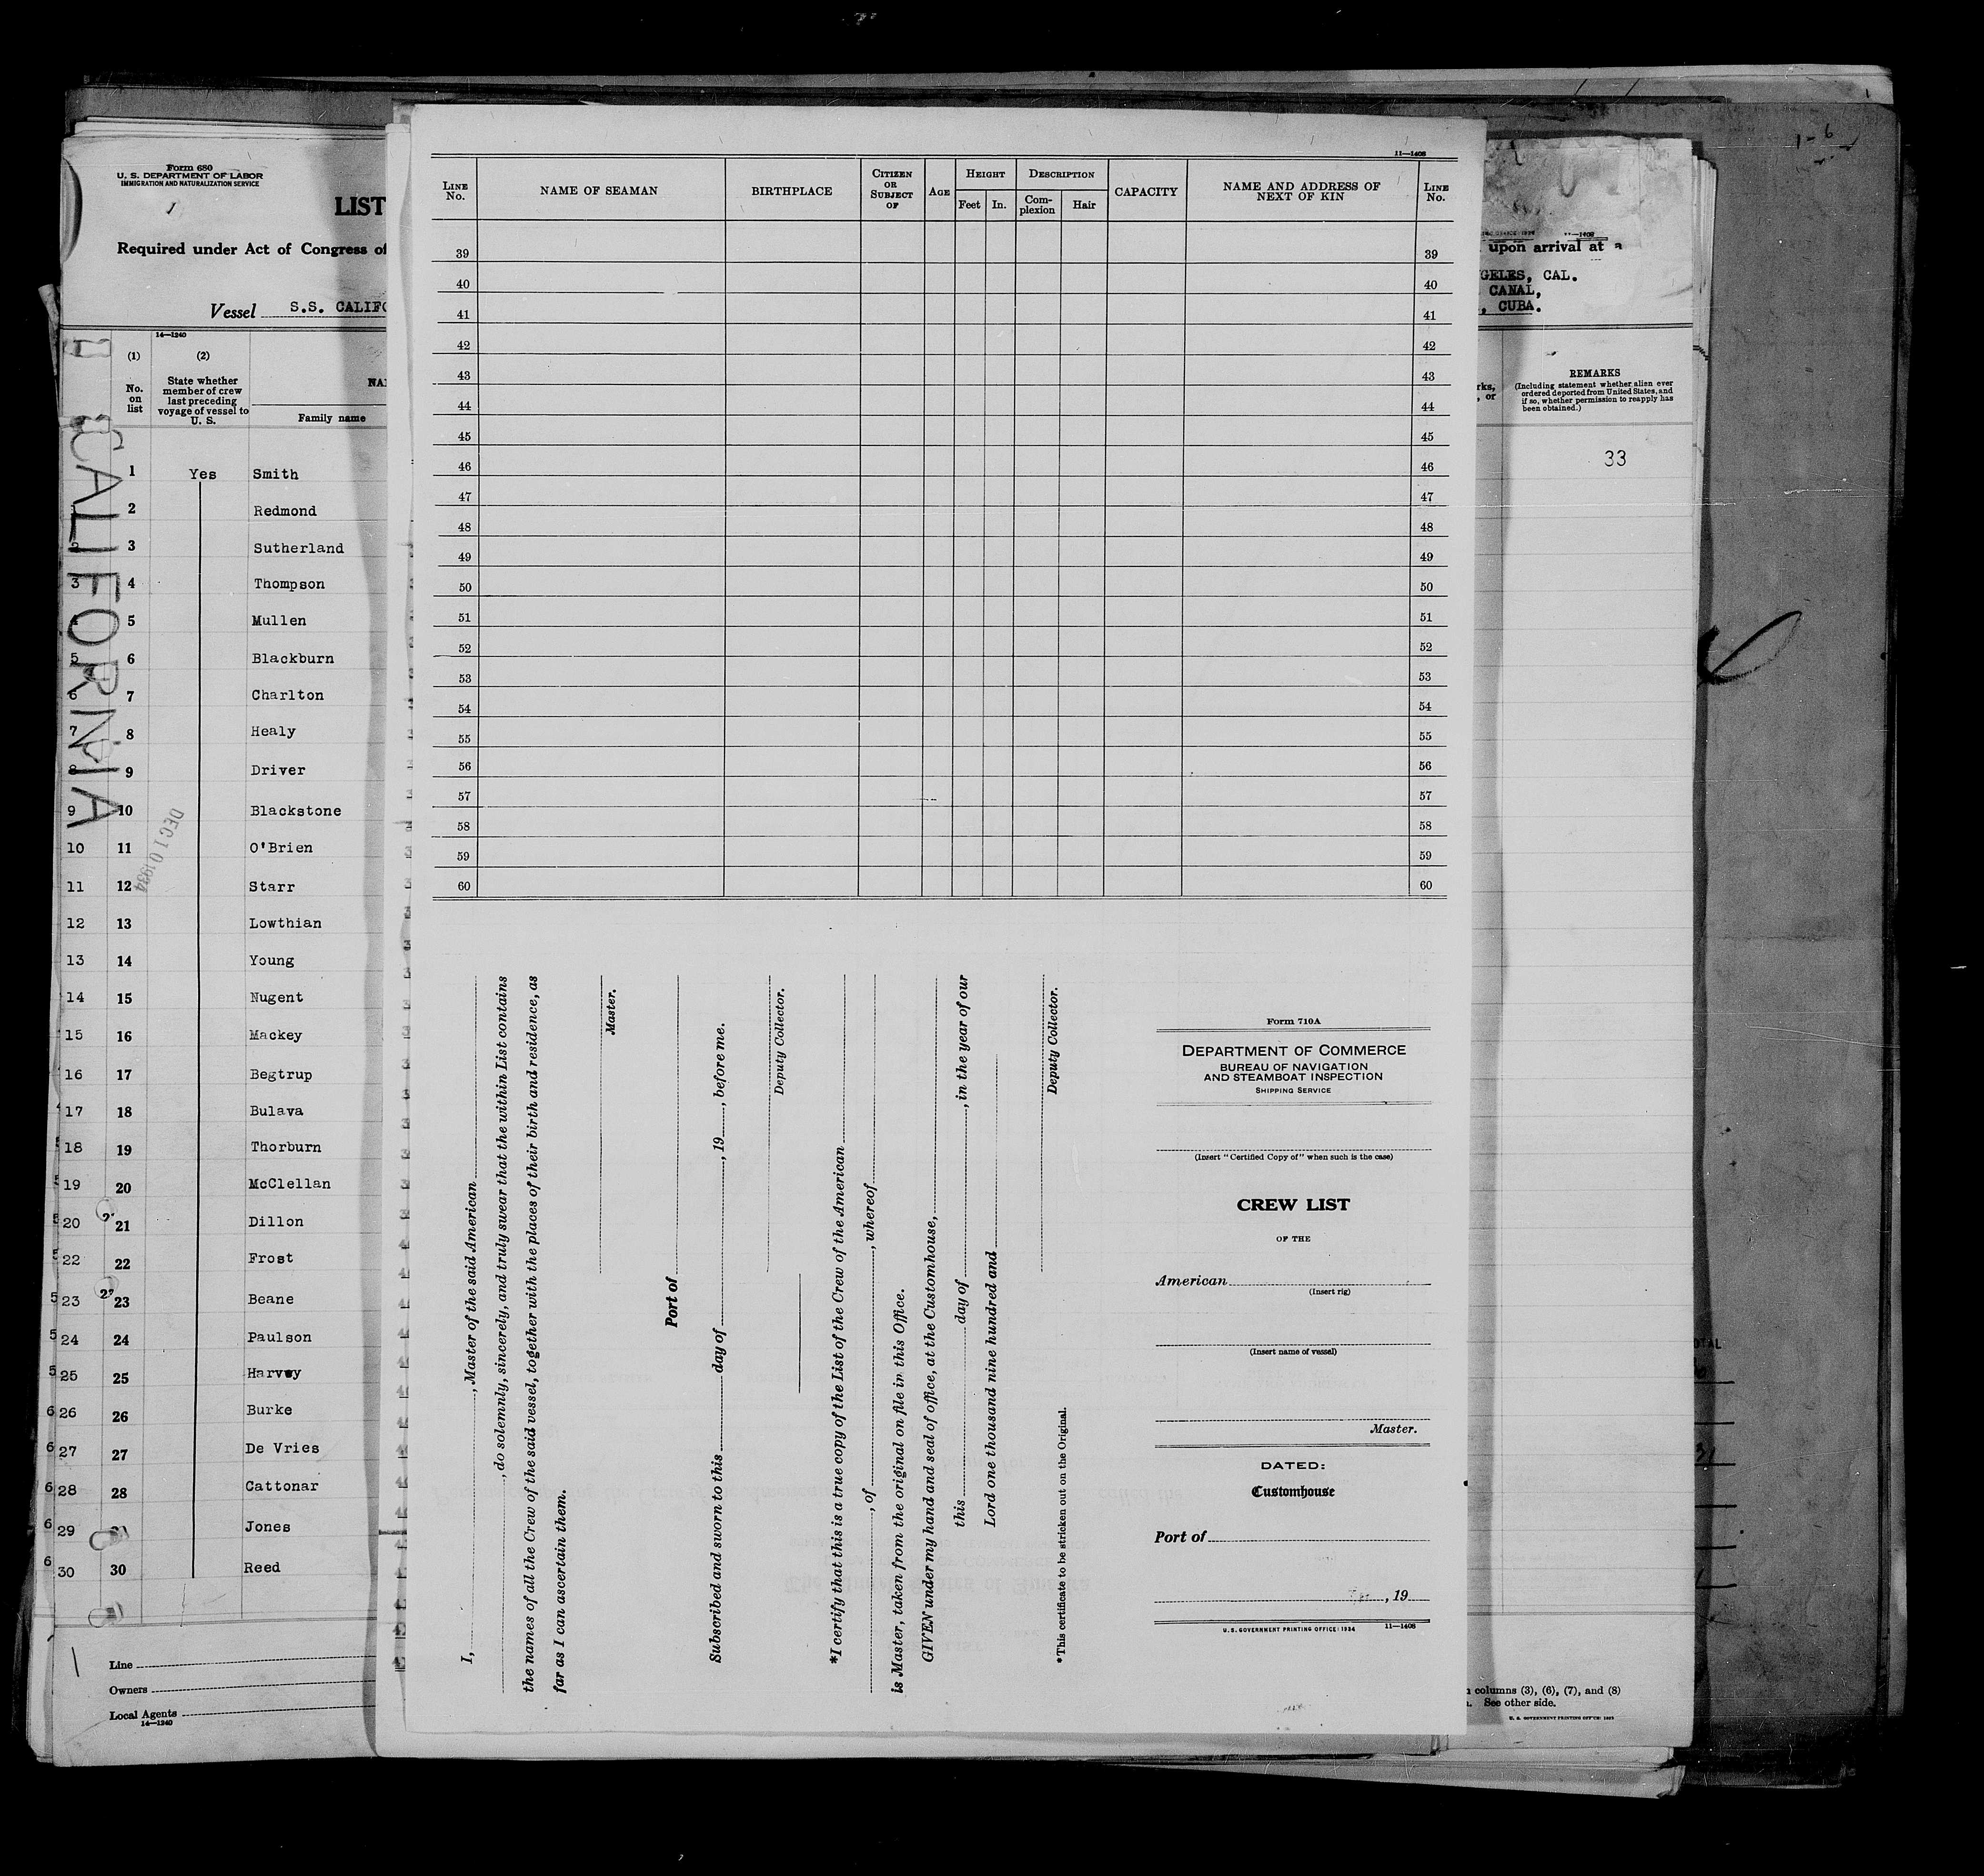 Form 680
U. S. DEPARTMENT OF LABOR
IMMIGRATION AND NATURALIZATION SERVICE
LIST
Required under Act of Congress of
Vessel S.S. CALIFO
14—1240
(1)
No. on list
(2)
State whether member of crew last preceding voyage of vessel to U. S.
Family name
CALIFORNIA
DEC 10 1934
1 Yes Smith
2 Redmond
3 Sutherland
3 4 Thompson
4 5 Mullen
5 6 Blackburn
6 7 Charlton
7 8 Healy
8 9 Driver
9 10 Blackstone
10 11 O'Brien
11 12 Starr
12 13 Lowthian
13 14 Young
14 15 Nugent
15 16 Mackey
16 17 Begtrup
17 18 Bulava
18 19 Thorburn
19 20 McClellan
20 21 Dillon
22 22 Frost
23 23 Beane
24 24 Paulson
25 25 Harvey
26 26 Burke
27 27 De Vries
28 28 Cattonar
29 Jones
30 30 Reed
Line
Owners
Local Agents
14—1240
11—1408
LINE No.
NAME OF SEAMAN
BIRTHPLACE
CITIZEN OR SUBJECT OF
AGE
HEIGHT
Feet
In.
DESCRIPTION
Complexion
Hair
CAPACITY
NAME AND ADDRESS OF NEXT OF KIN
LINE No.
39 39
40 40
41 41
42 42
43 43
44 44
45 45
46 46
47 47
48 48
49 49
50 50
51 51
52 52
53 53
54 54
55 55
56 56
57 57
58 58
59 59
60 60
I, , Master of the said American
, do solemnly, sincerely, and truly swear that the within List contains
the names of all the Crew of the said vessel, together with the places of their birth and residence, as
far as I can ascertain them.
Master.
Port of
Subscribed and sworn to this day of , 19 , before me.
Deputy Collector.
*I certify that this is a true copy of the List of the Crew of the American
, of , whereof
is Master, taken from the original on file in this Office.
GIVEN under my hand and seal of office, at the Customhouse,
this day of , in the year of our
Lord one thousand nine hundred and
Deputy Collector.
*This certificate to be stricken out on the Original.
Form 710A
DEPARTMENT OF COMMERCE
BUREAU OF NAVIGATION
AND STEAMBOAT INSPECTION
SHIPPING SERVICE
(Insert "Certified Copy of" when such is the case)
CREW LIST
OF THE
American
(Insert rig)
(Insert name of vessel)
Master.
DATED:
Customhouse
Port of
, 19
U. S. GOVERNMENT PRINTING OFFICE: 1934 11—1408
upon arrival at a
GELES, CAL.
CANAL,
, CUBA.
rks,
, or
REMARKS
(Including statement whether alien ever
ordered deported from United States, and
if so, whether permission to reapply has
been obtained.)
33
columns (3), (6), (7), and (8)
See other side.
U. S. GOVERNMENT PRINTING OFFICE: 1933
1-6